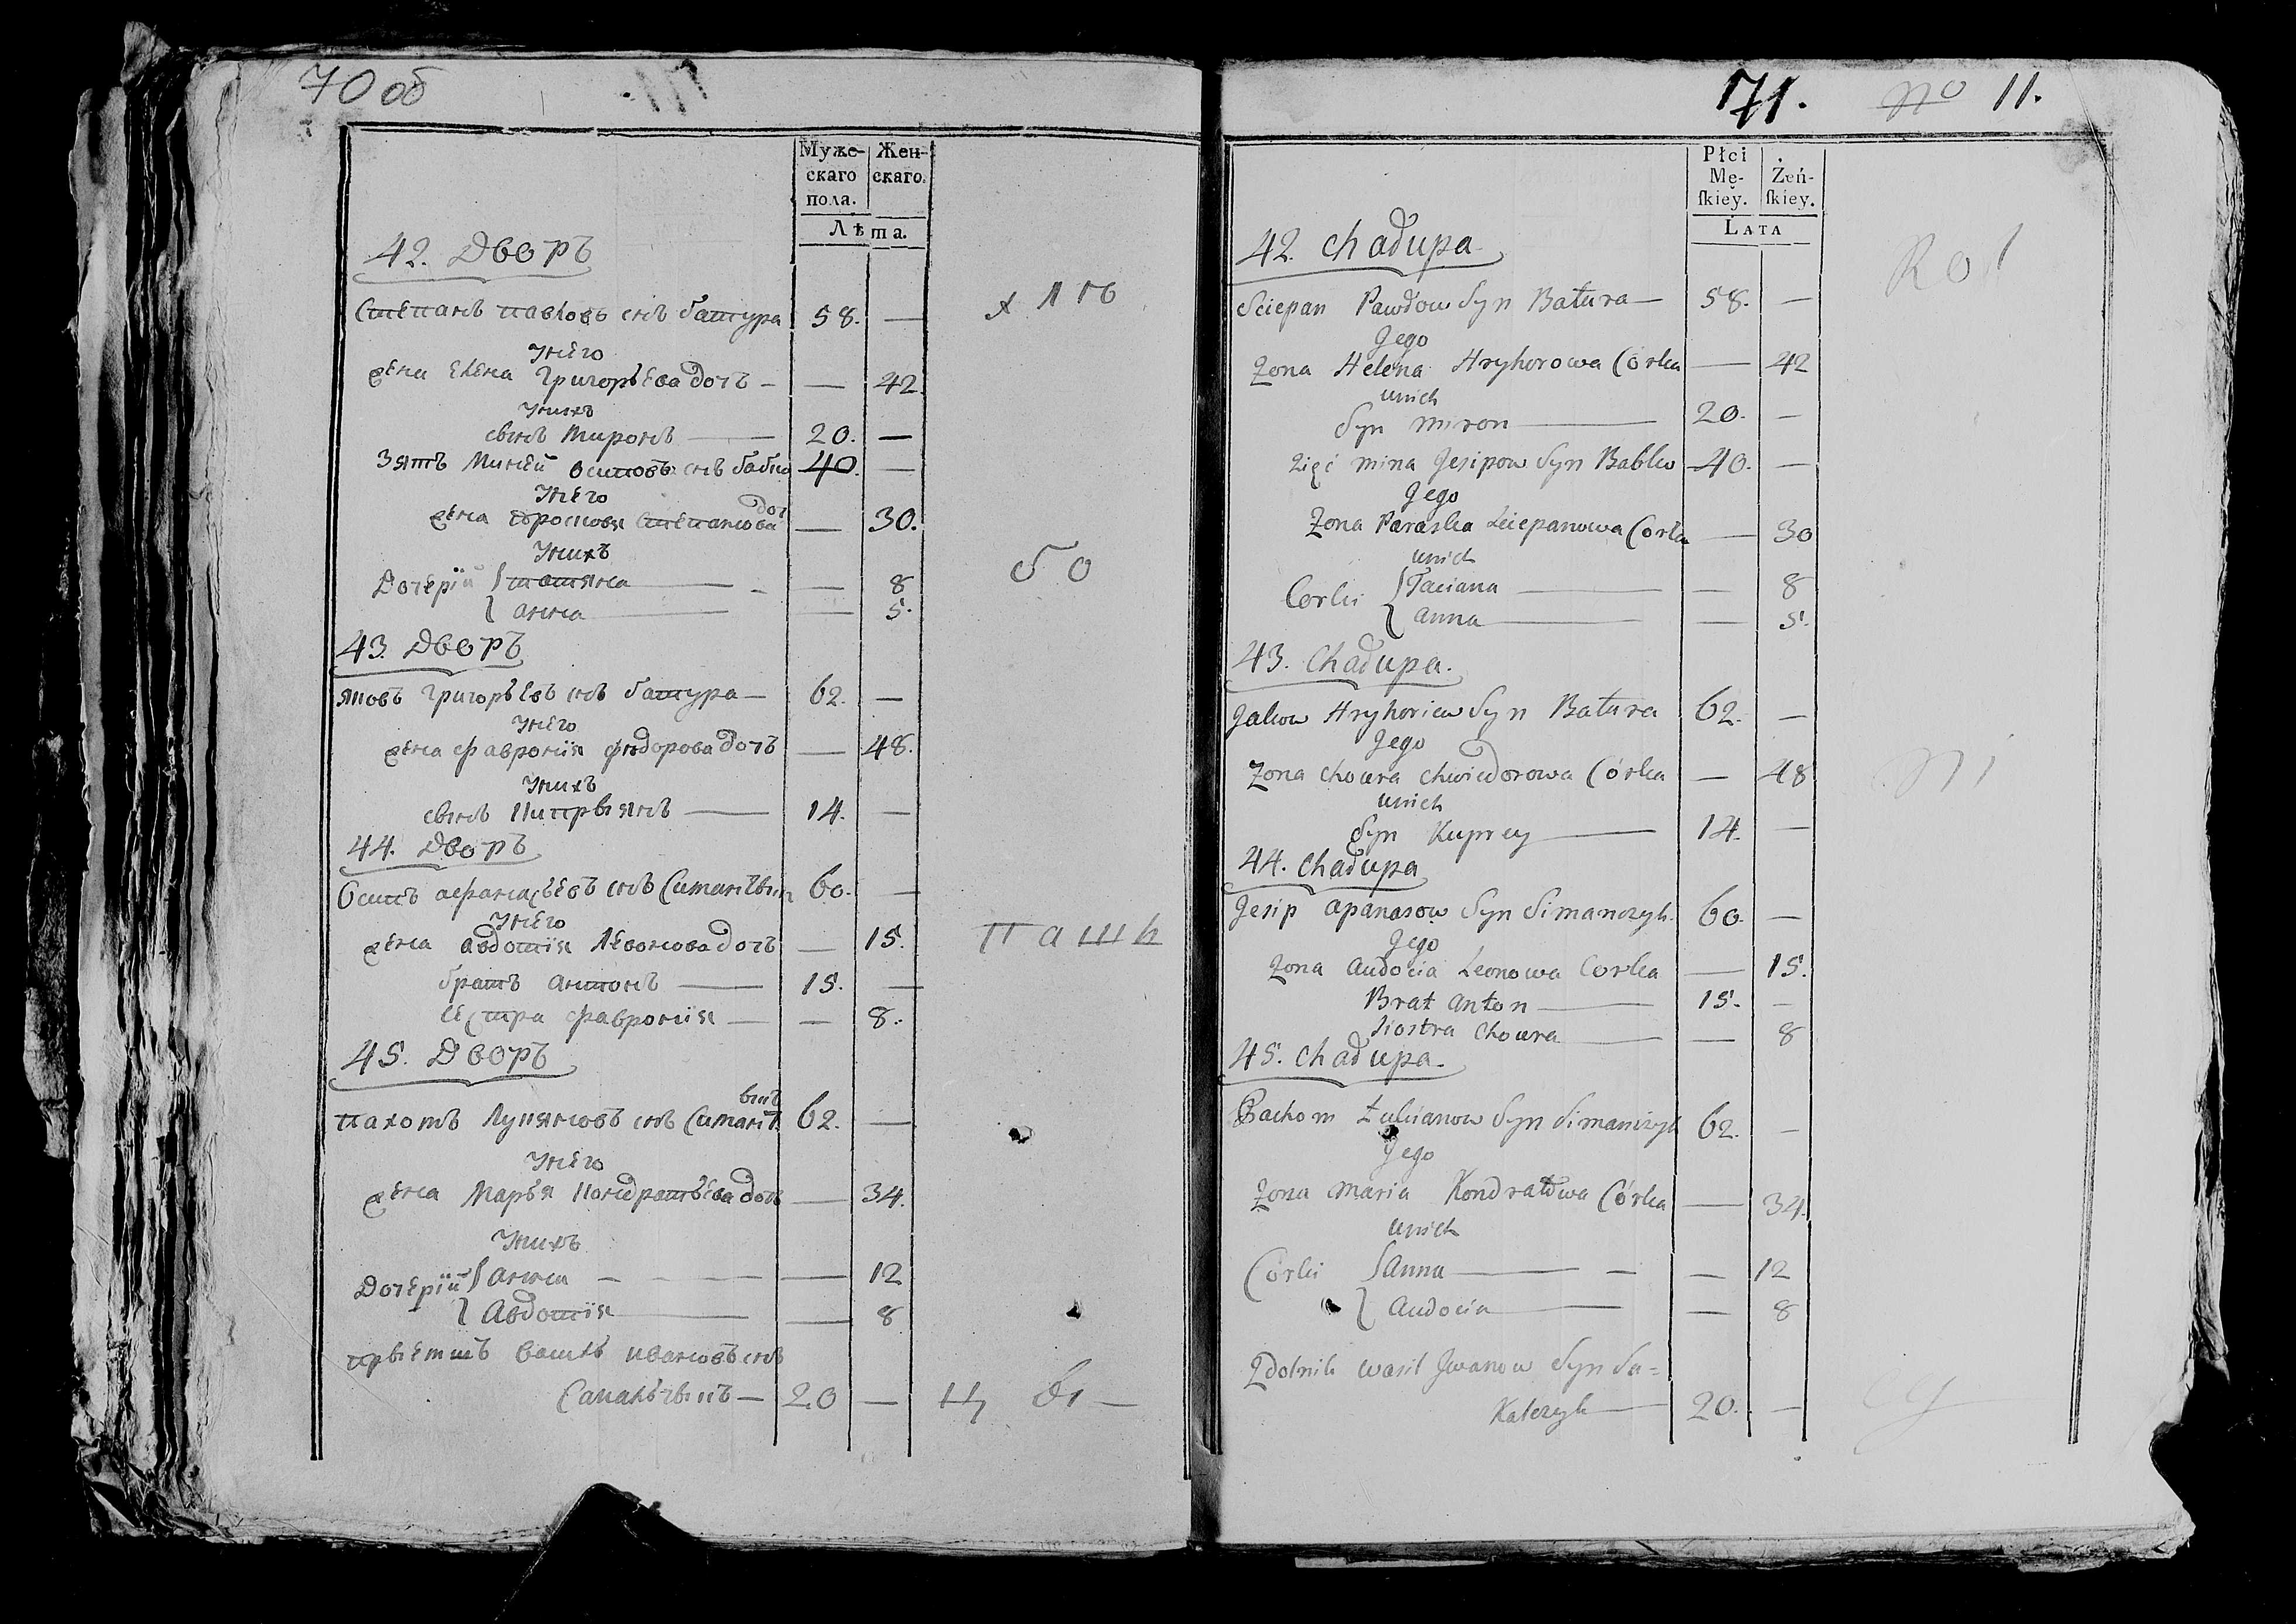 70 об
Муже-
скаго
пола.
Жен-
скаго.
Лѣта.
42. Дворъ
Степанъ павловъ снъ батура 58. —
У него
жена елена Григорьева дочь — — 42.
У нихъ
сынъ Миронъ — 20. —
Зять Миней осиповъ снъ бабко 40. —
У него
жена просковя Степанова доч — 30.
У нихъ
Дочерїй { татяна — — 8
{ анна — — 5.
43. Дворъ
яковъ Григорьевъ снъ батура — 62. —
У него
жена Феврония Федорова дочь — 48.
У нихъ
сынъ Куприянъ — 14. —
44. Дворъ
Осипъ афанасьевъ снъ Симанчыкъ 60. —
У него
жена авдотия Левонова дочь — 15.
братъ антонъ — 15. —
сестра Феврония — — 8.
45. Дворъ
пахомъ Лукяновъ снъ Симанчыкъ 62. —
У него
жена Марья Кондратьева дочь — 34.
У нихъ
Дочерїй { анна — — 12
{ Авдотия — — 8
прыемышъ Василь ивановъ снъ
Сакальчыкъ — 20 —
хлъ
бо
пашь
цы —
71. No 11.
Płci
Mę-
ſkieÿ.
Żeń-
ſkiey.
LATA
42. Chałupa
Sciepan Pawłow Syn Batura — 58. —
Jego
Żona Helena Hryhorowa Córka — 42
unich
Syn Miron — 20. —
Zięć Mina Jesipow Syn Babko 40. —
Jego
Żona Paraska Sciepanowa Corka — 30
unich
Corki { Taciana — — 8
{ Anna — — 5.
43. Chałupa.
Jakow Hryhoriew Syn Batura 62. —
Jego
Żona Chowra Chwiedorowa Córka — 48
unich
Syn Kuprey — 14. —
44. Chałupa
Jesip Apanasow Syn Simanczyk. 60. —
Jego
Żona Audocia Leonowa Corka — 15.
Brat Anton — 15. —
Siostra Chowra — — 8
45. Chałupa.
Pachom Łukianow Syn Simanczyk 62. —
Jego
Żona Maria Kondratowa Córka — 34.
unich
Córki { Anna — — — 12
{ Audocia — — 8
Zdolnik Wasil Jwanow Syn Sa=
Kalczyk — 20. —
Rol
ni
cy